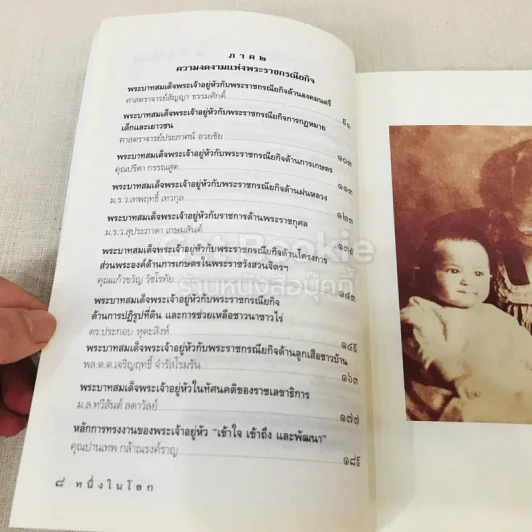 ภาค ๒
ความงดงามแห่งพระราชกรณียกิจ
พระบาทสมเด็จพระเจ้าอยู่หัวกับพระราชกรณียกิจด้านองคมนตรี
ศาสตราจารย์สัญญา ธรรมศักดิ์
๙๑
พระบาทสมเด็จพระเจ้าอยู่หัวกับพระราชกรณียกิจการกฎหมาย
เด็กและเยาวชน
ศาสตราจารย์ประภาศน์ อวยชัย
๑๐๓
พระบาทสมเด็จพระเจ้าอยู่หัวกับพระราชกรณียกิจด้านการเกษตร
คุณปรีดา กรรณสูต
๑๑๓
พระบาทสมเด็จพระเจ้าอยู่หัวกับพระราชกรณียกิจด้านฝนหลวง
ม.ร.ว.เทพฤทธิ์ เทวกุล
๑๒๓
พระบาทสมเด็จพระเจ้าอยู่หัวกับราชการด้านพระราชกุศล
ม.ร.ว.สุประภาดา เกษมสันต์
๑๓๕
พระบาทสมเด็จพระเจ้าอยู่หัวกับพระราชกรณียกิจด้านโครงการ
ส่วนพระองค์ด้านการเกษตรในพระราชวังสวนจิตรฯ
คุณแก้วขวัญ วัชโรทัย
๑๔๓
พระบาทสมเด็จพระเจ้าอยู่หัวกับพระราชกรณียกิจ
ด้านการปฏิรูปที่ดิน และการช่วยเหลือชาวนาชาวไร่
ดร.ประกอบ หุตะสิงห์
๑๔๙
พระบาทสมเด็จพระเจ้าอยู่หัวกับพระราชกรณียกิจด้านลูกเสือชาวบ้าน
พล.ต.ต.เจริญฤทธิ์ จำรัสโรมรัน
๑๖๓
พระบาทสมเด็จพระเจ้าอยู่หัวในทัศนคติของราชเลขาธิการ
ม.ล.ทวีสันต์ ลดาวัลย์
๑๗๗
หลักการทรงงานของพระเจ้าอยู่หัว "เข้าใจ เข้าถึง และพัฒนา"
คุณปานเทพ กล้าณรงค์ราญ
๑๘๙
๘ หนึ่งในโลก
Bookie
ร้านหนังสือบุ๊คกี้